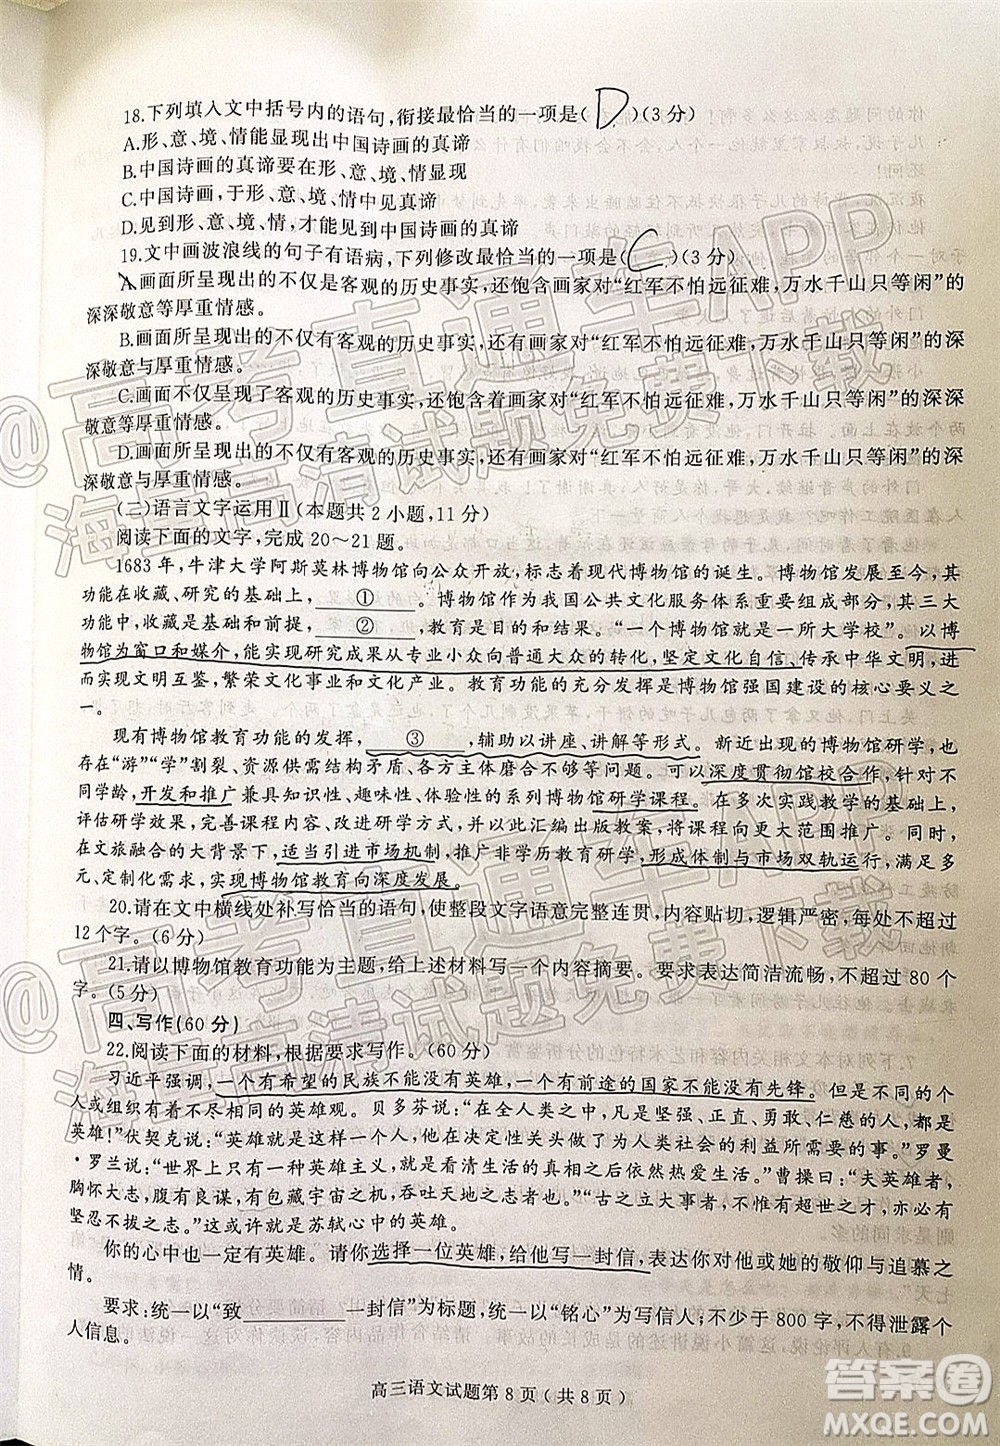 18.下列填入文中括号内的语句,衔接最恰当的一项是( D. )(3分)
A.形、意、境、情能显现出中国诗画的真谛
B.中国诗画的真谛要在形、意、境、情显现
C.中国诗画,于形、意、境、情中见真谛
D.见到形、意、境、情,才能见到中国诗画的真谛
19.文中画波浪线的句子有语病,下列修改最恰当的一项是( C. )(3分)
A.画面所呈现出的不仅是客观的历史事实,还饱含画家对“红军不怕远征难,万水千山只等闲”的
深深敬意等厚重情感。
B.画面所呈现出的不仅有客观的历史事实,还有画家对“红军不怕远征难,万水千山只等闲”的深
深敬意与厚重情感。
C.画面不仅呈现了客观的历史事实,还饱含着画家对“红军不怕远征难,万水千山只等闲”的深深
敬意等厚重情感。
D.画面所呈现出的不仅有客观的历史事实,还有画家对“红军不怕远征难,万水千山只等闲”的深
深敬意与厚重情感。
(二)语言文字运用Ⅱ(本题共2小题,11分)
阅读下面的文字,完成20～21题。
1683年,牛津大学阿斯莫林博物馆向公众开放,标志着现代博物馆的诞生。博物馆发展至今,其
功能在收藏、研究的基础上,①。博物馆作为我国公共文化服务体系重要组成部分,其三大
功能中,收藏是基础和前提,②,教育是目的和结果。“一个博物馆就是一所大学校”。以博
物馆为窗口和媒介,能实现研究成果从专业小众向普通大众的转化,坚定文化自信、传承中华文明,进
而实现文明互鉴,繁荣文化事业和文化产业。教育功能的充分发挥是博物馆强国建设的核心要义之
一。
现有博物馆教育功能的发挥,③,辅助以讲座、讲解等形式。新近出现的博物馆研学,也
存在“游”“学”割裂、资源供需结构矛盾、各方主体磨合不够等问题。可以深度贯彻馆校合作,针对不
同学龄,开发和推广兼具知识性、趣味性、体验性的系列博物馆研学课程。在多次实践教学的基础上,
评估研学效果,完善课程内容、改进研学方式,并以此汇编出版教案,将课程向更大范围推广。同时,
在文旅融合的大背景下,适当引进市场机制,推广非学历教育研学,形成体制与市场双轨运行,满足多
元定制化需求,实现博物馆教育向深度发展。
20.请在文中横线处补写恰当的语句,使整段文字语意完整连贯,内容贴切,逻辑严密,每处不超过
12个字。(6分)
21.请以博物馆教育功能为主题,给上述材料写一个内容摘要。要求表达简洁流畅,不超过80个
字。(5分)
四、写作(60分)
22.阅读下面的材料,根据要求写作。(60分)
习近平强调,一个有希望的民族不能没有英雄,一个有前途的国家不能没有先锋。但是不同的个
人或群体有着不同的英雄观。贝多芬说:“在全人类之中,凡是坚强、正直、勇敢、仁慈的人,都是
英雄!”伏契克说:“英雄就是这样一个人,他在决定性关头做了为人类社会的利益所需要的事。”罗曼
·罗兰说:“世界上只有一种英雄主义,就是看清生活的真相之后依然热爱生活。”曹操曰:“夫英雄者,
胸怀大志,腹有良谋,有包藏宇宙之机,吞吐天地之志者也。”“古之立大事者,不惟有超世之才,亦必有
坚忍不拔之志。”这或许就是苏轼心中的英雄。
你的心中也一定有英雄。请你选择一位英雄,给他写一封信,表达你对他或她的敬仰与追慕之
情。
要求:统一以“致 一封信”为标题,统一以“铭心”为写信人;不少于800字,不得泄露个
人信息。
高三语文试题第8页(共8页)
@高考直通车APP
海量高清试题免费下载
@高考直通车APP
海量高清试题免费下载
答案圈
MXQE.COM